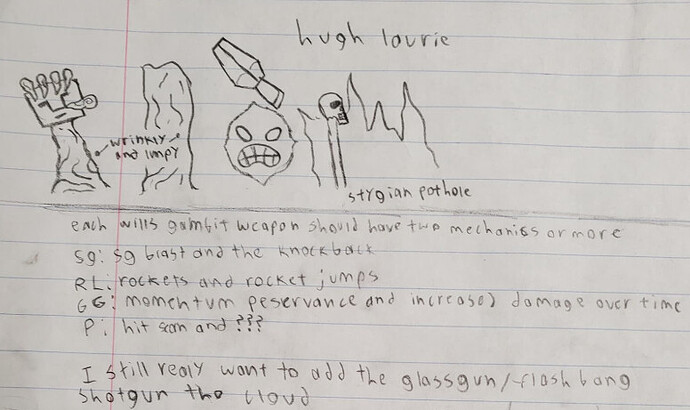 hugh lourie
wrinkly
and lmpy
stygian pothole
each wills gambit weapon should have two mechanics or more
sg: sg blast and the knockback
RL: rockets and rocket jumps
GG: momentum peservance and increased damage over time
P: hit scan and ???
I still realy want to add the glassgun/flashbang
shotgun tho cloud